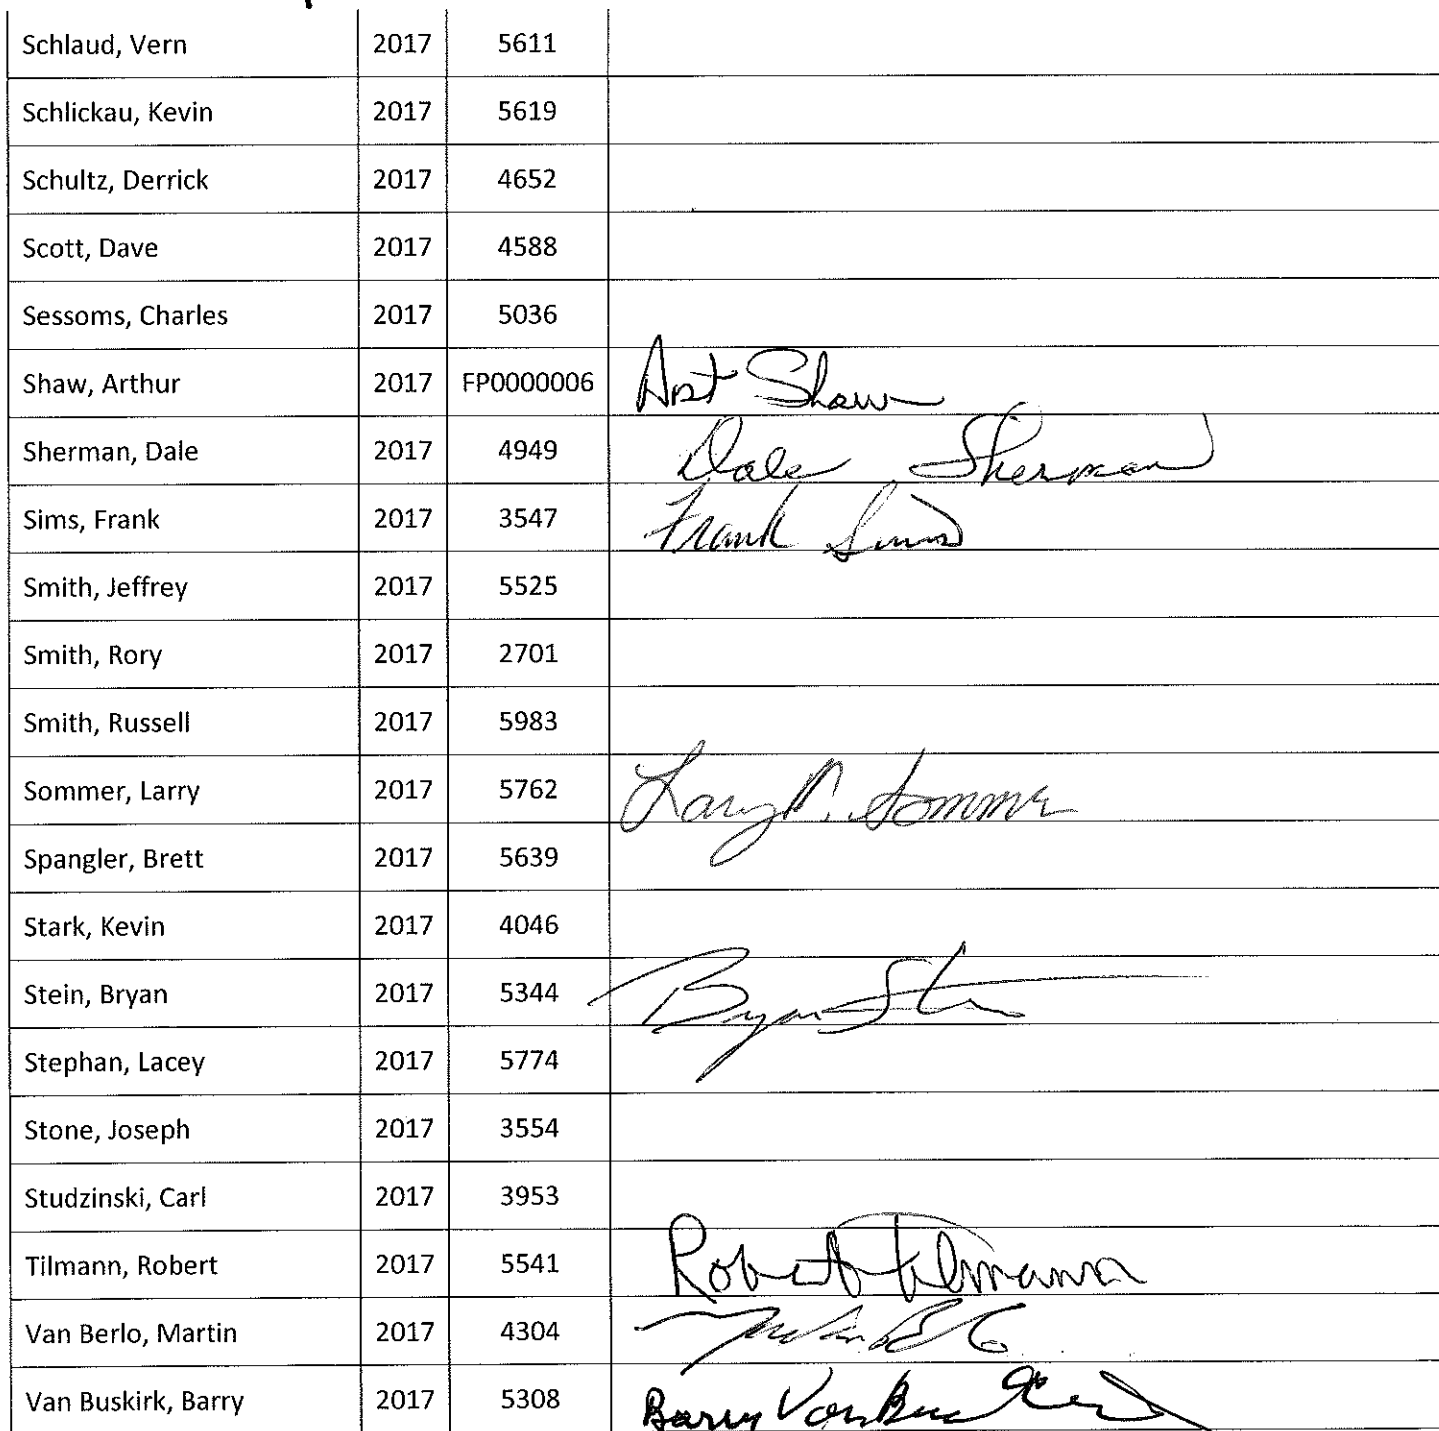 Schlaud, Vern 2017 5611
Schlickau, Kevin 2017 5619
Schultz, Derrick 2017 4652
Scott, Dave 2017 4588
Sessoms, Charles 2017 5036
Shaw, Arthur 2017 FP0000006 Art Shaw
Sherman, Dale 2017 4949 Dale Sherman
Sims, Frank 2017 3547 Frank Sims
Smith, Jeffrey 2017 5525
Smith, Rory 2017 2701
Smith, Russell 2017 5983
Sommer, Larry 2017 5762 Larry D. Sommer
Spangler, Brett 2017 5639
Stark, Kevin 2017 4046
Stein, Bryan 2017 5344 Bryan Stein
Stephan, Lacey 2017 5774
Stone, Joseph 2017 3554
Studzinski, Carl 2017 3953
Tilmann, Robert 2017 5541 Robert Tilmann
Van Berlo, Martin 2017 4304
Van Buskirk, Barry 2017 5308 Barry Van Buskirk